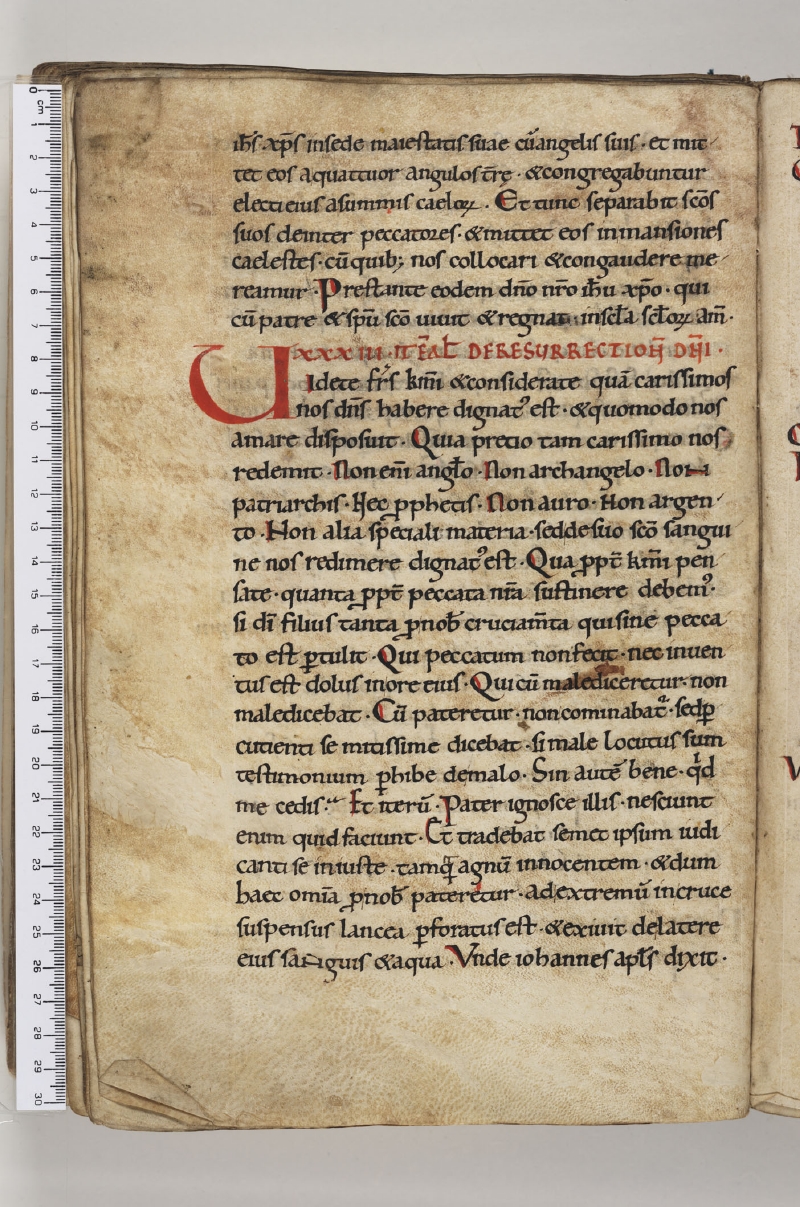 ih̅s xp̅s in sede maiestatis suae cū angelis suis · et mit
tet eos a quattuor angulos t̅rę · & congregabuntur
electi eius a summis caeloꝝ · Et tunc separabit sc̅os
suos de inter peccatores · & mittet eos in mansiones
caelestes · cū quib; nos collocari & congaudere me
reamur · Prestante eodem dn̅o nr̅o ih̅u xp̅o · qui
cū patre & sp̅u sc̅o uiuit & regnat in sc̅la sc̅loꝝ am̅ ·
XXXIII · ITE̅ AL̅ DE RESURRECTION̅ DN̅I ·
Uidete fr̅s km̅i & considerate quā carissimos
nos dn̅s habere dignat᾽ est · & quomodo nos
amare disposuit · Quia precio tam carissimo nos
redemit · Non em̅ anglo̅ · Non archangelo · Non
patriarchis · Nec ꝓphetis · Non auro · Non argen
to · Non alia speciali materia · sed de suo sc̅o sangui
ne nos redimere dignat᾽ est · Qua ꝓpt̅ km̅i pen
sate · quanta ꝓpt̅ peccata nr̅a sustinere debem᾽ ·
si di̅ filius tanta ꝓ nob̅ cruciam̅ta qui sine pecca
to est ꝑtulit · Qui peccatum non fecit · nec inuen
tus est dolus in ore eius · Qui cū malediceretur · non
maledicebat · Cū pateretur · non cominabat᾽ · sed ꝑ
cutienti se mitissime dicebat · si male locutus sum
testimonium ꝑhibe de malo · Sin autē bene · qd̅
me cedis · Et iterū · Pater ignosce illis · nesciunt
enim quid faciunt · Et tradebat semet ipsum iudi
canti se iniuste · tamq̅ agnū innocentem · & dum
haec om̅ia ꝓ nob̅ pateretur · ad extremū in cruce
suspensus lancea ꝑforatus est · & exiuit de latere
eius sanguis & aqua · Vnde iohannes apl̅s dixit ·